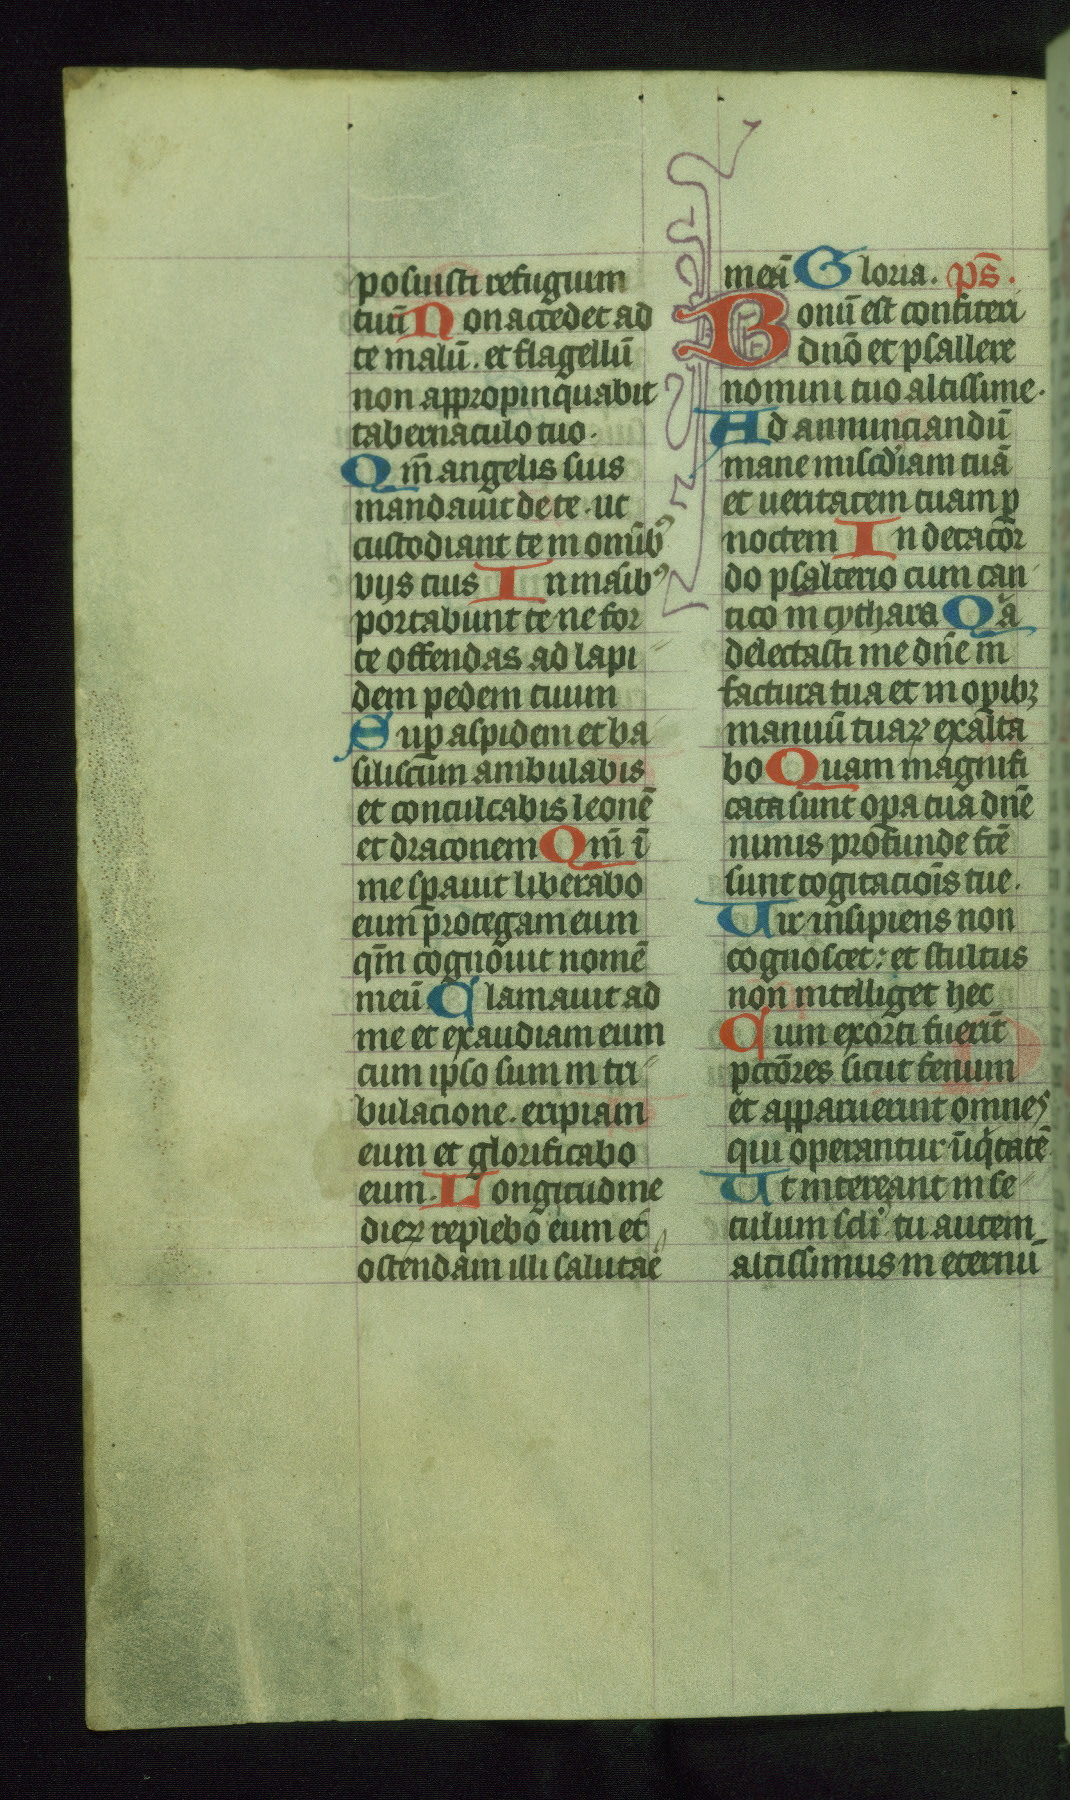 posuisti refugium
tuū Non accedet ad
te malū . et flagellū
non appropinquabit
tabernaculo tuo .
Qm̄ angelis suis
mandauit de te . ut
custodiant te in om̄ibꝰ
vijs tuis In maībꝰ
portabunt te ne for
te offendas ad lapi
dem pedem tuum
Suꝑ aspidem et ba
siliscum ambulabis
et conculcabis leonē
et draconem Qm̄ ī
me sꝑauit liberabo
eum protegam eum
qm̄ cognouit nomē
meū Clamauit ad
me et exaudiam eum
cum ipso sum in tri
bulacione . eripiam
eum et glorificabo
eum . Longitudine
dieꝝ replebo eum et
ostendam illi salutaē
meū . Gloria . pš .
Bonū est confiteri
dnō et psallere
nomini tuo altissime .
Ad annunciandū
mane misc̄diam tuā
et ueritatem tuam ꝑ
noctem In decacor
do psalterio cum can
tico in cythara Qa
delectasti me dnē in
factura tua et in oꝑibꝫ
manuū tuaꝝ exalta
bo Quam magnifi
cata sunt oꝑa tua dnē
nimis profunde fc̄e
sunt cogitacioīs tue .
Uir insipiens non
cognoscet : et stultus
non intelliget hec
Cum exorti fuerīt
pctōres sicut fenum
et apparuerint omnes
qui operantur īiq̇tatē
Ut intereant in se
culum sc̄li tu autem
altissimus in eternū